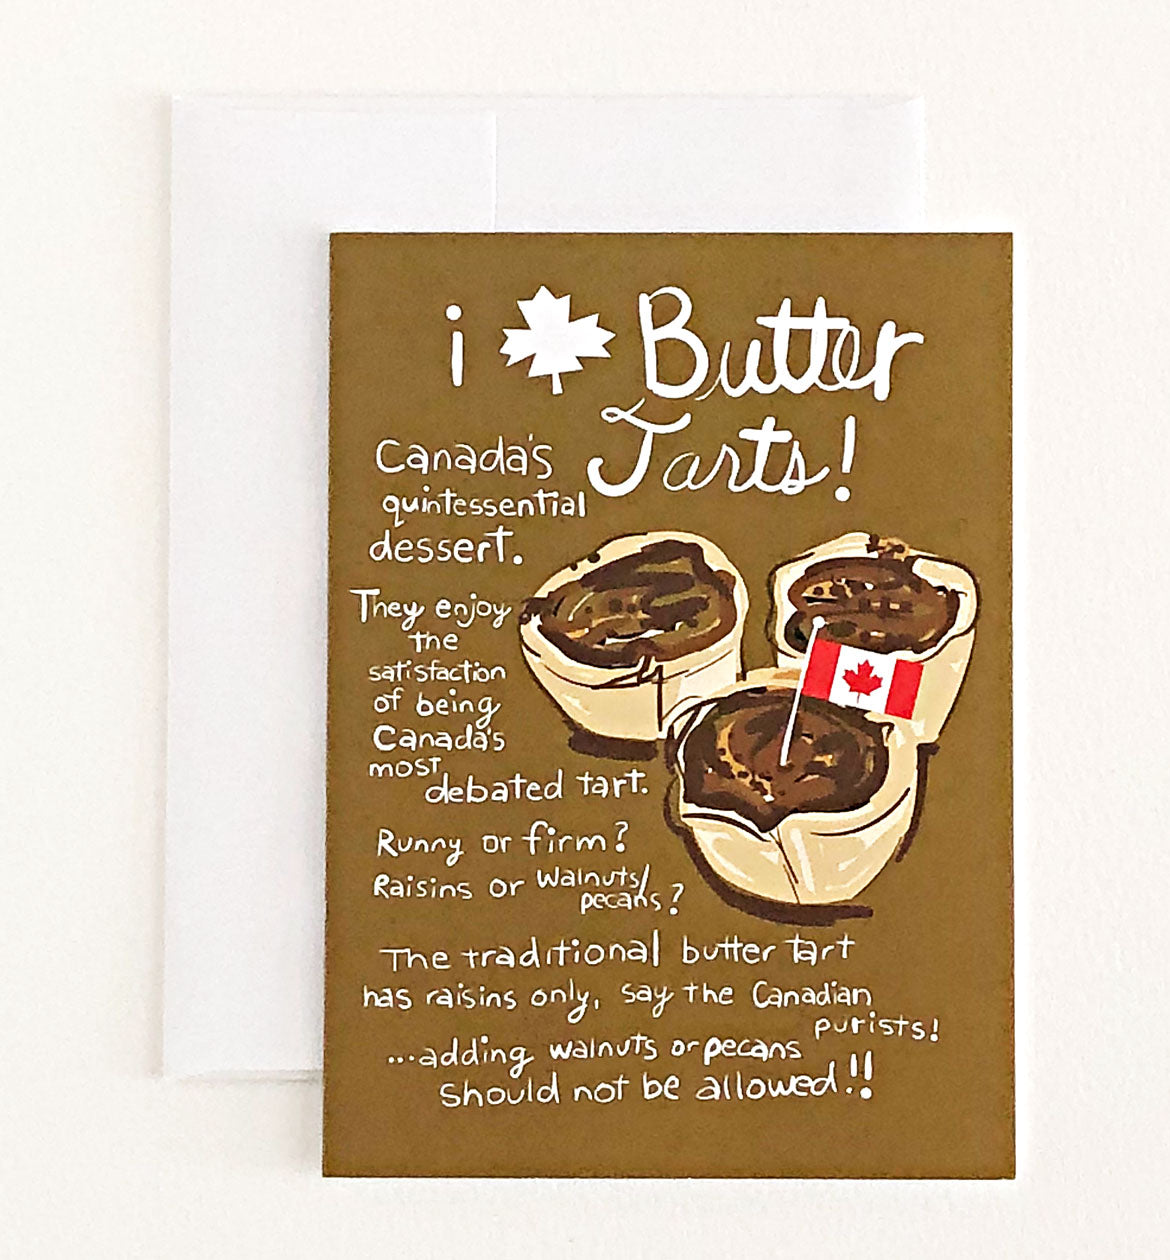 i Butter
Tarts!
Canada's
quintessential
dessert.
They enjoy
the
satisfaction
of being
Canada's
most
debated tart.
Runny or firm?
Raisins or walnuts/
pecans?
The traditional butter tart
has raisins only, say the Canadian
purists!
...adding walnuts or pecans
should not be allowed!!